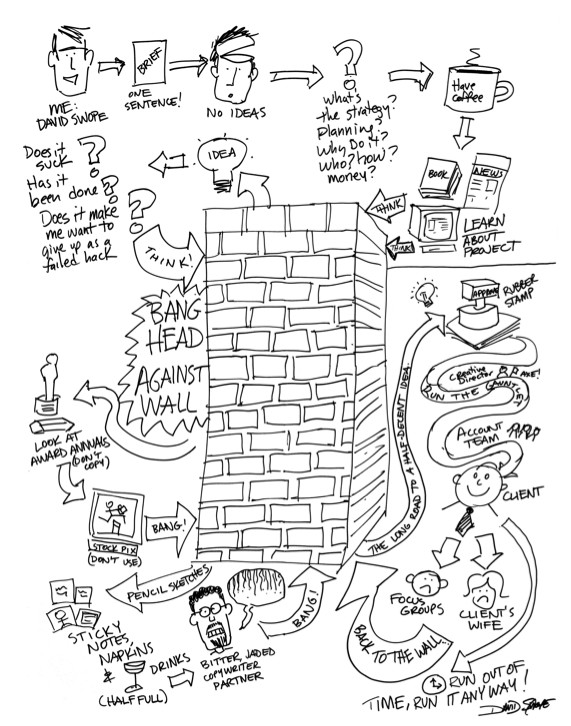 ME:
DAVID SWOPE
BRIEF
ONE
SENTENCE!
NO IDEAS
?
what's
the strategy?
Planning?
Why Do it?
Who? how?
money?
Have
coffee
BOOK
NEWS
LEARN
ABOUT
PROJECT
THINK
THINK
IDEA
Does it
suck ?
Has it
been done ?
Does it make
me want to
give up as a
failed hack
?
THINK!
BANG
HEAD
AGAINST
WALL
LOOK AT
AWARD ANNUALS
(DON'T
COPY)
STOCK PIX
(DON'T USE)
BANG!
PENCIL SKETCHES
STICKY
NOTES,
NAPKINS
&
DRINKS
(HALF FULL)
BITTER, JADED
COPYWRITER
PARTNER
BANG!
THE LONG ROAD TO A HALF-DECENT IDEA
RUBBER
STAMP
Creative
Director
RUN THE GAUNTLET
ACCOUNT
TEAM
CLIENT
FOCUS
GROUPS
CLIENT'S
WIFE
BACK TO THE WALL...
RUN OUT OF
TIME, RUN IT ANYWAY!
DAVID SWOPE